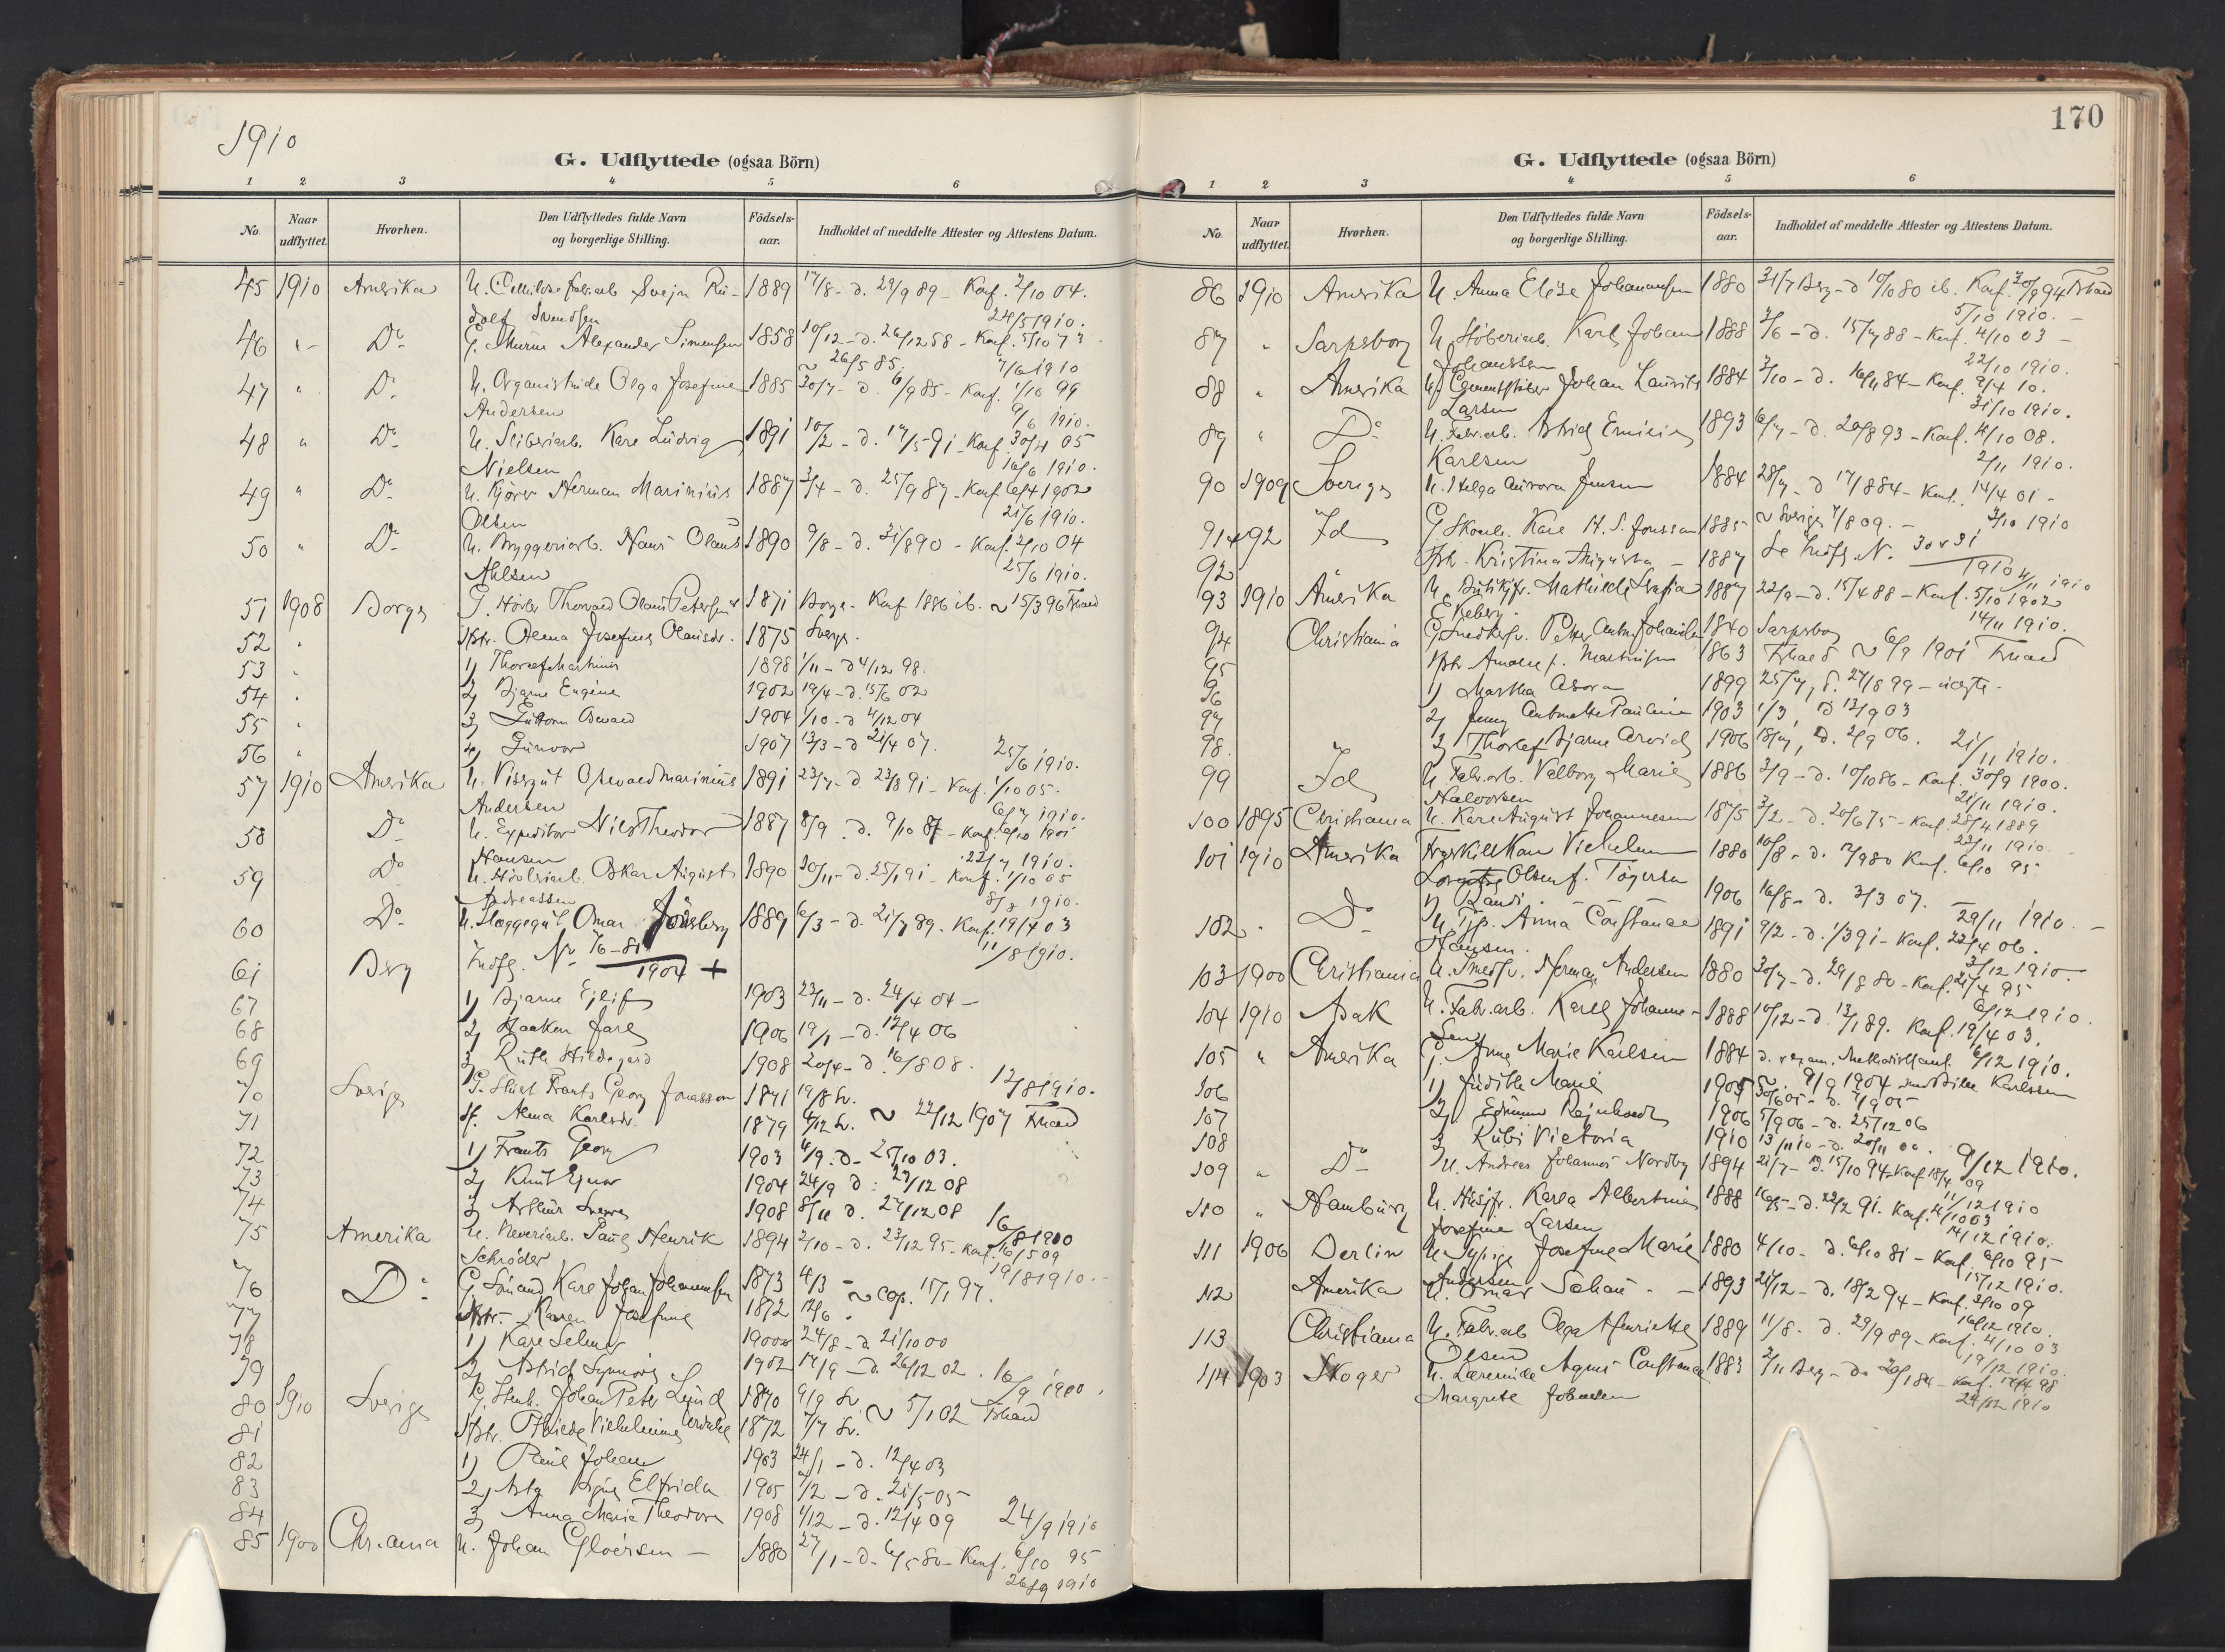 1910
G. Udflyttede (ogsaa Börn)
1 2 3 4 5 6
No. Naar udflyttet. Hvorhen. Den Udflyttedes fulde Navn og borgerlige Stilling. Födsels-aar. Indholdet af meddelte Attester og Attestens Datum.
45 1910 Amerika U. Cellulosefabr.arb Svejn Ru- 1889 17/8 - d. 29/9 89 - Konf. 2/10 04.
dolf Svendsen 24/5 1910.
46 " Do G. Murer Alexander Simensen 1858 10/12 - d. 26/12 58 - Konf. 5/10 73
~ 26/5 85. 7/6 1910
47 " Do U. Organistinde Olga Josefine 1885 30/7 - d. 6/9 85 - Konf. 1/10 99
Andersen 9/6 1910.
48 " Do U. Sliberiarb. Karl Ludvig 1891 10/2 - d. 17/5 91 - Konf. 30/4 05
Nielsen 16/6 1910.
49 " Do U. Kjörer Herman Marinius 1887 3/4 - d. 25/9 87 - Konf 6/4 1902
Olsen 21/6 1910.
50 " Do U. Bryggeriarb. Hans Olaus 1890 9/8 - d. 31/8 90 - Konf. 2/10 04
Ahlsen 25/6 1910.
51 1908 Borge G. Thorvald Olaus Petersen 1871 Borge - Konf 1886 ib. ~ 15/3 96
52 " Hstr. Alma Josefine Olausdr. 1875 Sverge.
53 " 1) Thorleif Martinius 1898 1/11 - d 4/12 98.
54 " 2) Bjarne Eugène 1902 19/4 - d. 15/6 02
55 " 3) Guttorm Osvald 1904 1/10 - d 4/12 04
56 " 4) Gunvor 1907 13/3 - d 21/4 07. 25/6 1910.
57 1910 Amerika U. Visergut Osvald Marinius 1891 23/7 - d. 23/8 91 - Konf. 1/10 05.
Andersen 6/7 1910.
58 Do U. Expeditör Niels Theodor 1887 8/9 - d. 9/10 87 - Konf.
Hansen 22/7 1910.
59 Do U. Oskar August 1890 20/11 - d. 25/1 91 - Konf. 1/10 05
Andreassen 8/8 1910.
60 Do U. Omar 1889 6/3 - d. 21/7 89. Konf. 19/4 03
11/8 1910.
61 Berg Indfl. No 76-81
1904 +
67 1) Bjarne Ejlif 1903 22/11 - d. 24/4 04 -
68 2) Haakon Jarl 1906 19/1 - d. 17/4 06
69 3) Ruth Hildegard 1908 20/4 - d. 16/8 08. 12/8 1910.
70 Sverige G. Frants Georg Jonasson 1871 19/8 Sv.
71 H. Alma Karlsdr. 1879 4/12 Sv. ~ 22/12 1907
72 1) Frants Georg 1903 4/9 - d - 25/10 03.
73 2) Knut Ejnar 1904 24/9 d : 27/12 08
74 3) Arthur Sverre 1908 8/11 d. 27/12 08 16/8 1910
75 Amerika U. Reveriarb. Paul Henrik 1894 2/10 - d. 23/12 95 - Konf. 16/5 09
Schröder 19/8 1910.
76 Do G Karl Johan Johannessen 1873 4/3 -
77 Hstr. Karen Josefine 1872 12/6 ~ cop. 17/1 97.
78 1) Kare Selmer 1900 24/8 - d. 21/10 00
79 2) Astrid Synnöve 1902 14/9 - d. 26/12 02. 16/9 1910.
80 1910 Sverige G. Stenh. Johan Peter Lund 1870 9/9 Sv.
81 Hstr. Vilhelmine 1872 7/7 Sv. ~ 5/1 02
82 1) Paul Johan 1903 24/1 - d. 12/4 03
83 2) Asta Signe Elfrida 1905 /2 - d. 21/5 05
84 3) Anna Marie Theodora 1908 4/12 - d. 12/4 09 24/9 1910
85 1900 Chr.ania U. Johan Gloërsen - 1880 27/1 - d. 6/5 80 - Konf. 6/10 95
26/9 1910
170
G. Udflyttede (ogsaa Börn)
1 2 3 4 5 6
No. Naar udflyttet. Hvorhen. Den Udflyttedes fulde Navn og borgerlige Stilling. Födsels-aar. Indholdet af meddelte Attester og Attestens Datum.
86 1910 Amerika U. Anna Elise Johannessen 1880 31/7 Berg - d 10/10 80 ib. Konf. 30/9 94
5/10 1910. -
87 " Sarpsborg U. Karl Johan 1888 /6 - d. 15/7 88 - Konf. 4/10 03 -
Johanssen 22/10 1910.
88 " Amerika U. Cementstöber Johan Laurits 1884 2/10 - d. 16/11 84 - Konf. 9/4 10.
Larsen 31/10 1910.
89 " Do U. Fabr.arb. Astrid Emilie 1893 6/7 - d. 20/8 93 - Konf. 4/10 08.
Karlsen 2/11 1910.
90 1909 Sverige U. Helga Aurora Jensen 1884 28/7 - d 17/8 84 - Konf. 14/4 01 -
~ Sverige 7/8 09. - /10 1910
91+92 Id G Skom. Karl H. S. Jonsson 1885 Se Indfl. No. 30 & 31
92 Hstr. Kristina Augusta - 1887 1910 4/11 1910
93 1910 Amerika U. Butikjfr. Mathilde Sofia 1887 22/9 - d. 15/4 88 - Konf. 5/10 1902
Ekeberg. 14/11 1910.
94 Christiania G. Peter Anton Johansen 1840 Sarpsborg
95 Hstr Amalie f. Martinsen 1863 ~ 6/9 1901
1) Martha Asora 1899 25/7, d. 27/8 99 - uægte.
97 2) Jenny Antonette Pauline 1903 1/3, d 13/9 03
98. 3) Thorleif Bjarne Arvid 1906 18/7, d. 2/9 06. 21/11 1910.
99 Id U. Fabr.arb. Valborg Marie 1886 3/9 - d. 10/10 86 - Konf. 30/9 1900.
Halvorsen 21/11 1910.
100 1895 Christiania U. Karl August Johannesen 1875 3/2 - d. 20/6 75 - Konf. 28/4 1889
22/11 1910
101 1910 Amerika Vilhelmine 1880 10/8 - d. /9 80 Konf. 6/10 95
Olsen f. Tögersen
1) Randi 1906 16/8 - d. 3/3 07. 29/11 1910. -
102 " Do U. Tjp. Anna Constance 1891 9/2 - d. 1/3 91 - Konf. 22/4 06.
Hansen. 3/12 1910
103 1900 Christiania U. Herman Andersen 1880 30/7 - d. 29/8 80 - Konf. 21/4 95
6/12 1910
104 1910 Aak U. Fabr.arb. Karl Johanne- 1888 10/12 - d. 13/1 89. Konf. 19/4 03.
sen 6/12 1910.
105 " Amerika G. Anna Marie Karlsen 1884
~ 9/9 1904 Karlssen
106 1) Judith Marie 1905 30/6 05 - d. 7/9 05
107 2) Edmund Rejnhardt 1906 5/9 06 - d. 25/12 06
108 3) Rubi Victoria 1910 13/11 10 - d. 20/11 10. 9/12 1910.
109 " Do U. Andreas Johannes Nordby 1894 21/7 - d. 15/10 94 - Konf 18/4 09
11/12 1910
110 " Hamburg U. Husjfr. Karla Albertine 1888 16/5 - d. 22/2 91. Konf. 4/10 03
Josefine Larsen 14/12 1910.
111 1906 Berlin U Sypige Josefine Marie 1880 4/10 - d. 6/10 81 - Konf. 6/10 95
Andersen 15/12 1910.
112 Amerika U. Omar Schau - - 1893 21/12 - d. 18/2 94 - Konf. 3/10 09
16/12 1910.
113 Christiania U. Fabr.arb Olga Henriette 1889 11/8. d. 29/9 89 - Konf. 4/10 03
Olsen 19/12 1910.
114 1903 Skoger U. Lærerinde Agnes Constance 1883 2/11 Berg - do 20/1 84 - Konf. 17/4 98
Margrete Johnsen 29/12 1910